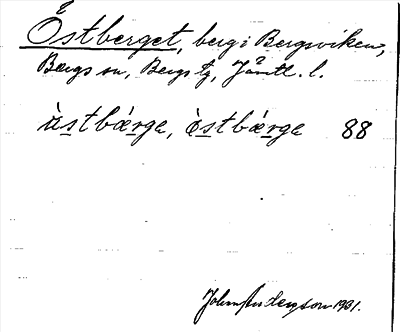 Östberget, berg i Bergsviken,
Bergs sn, Bergs tg, Jämtl. l.
ùstbǽrga, èstbǽrga 88
John Anderson 1931.